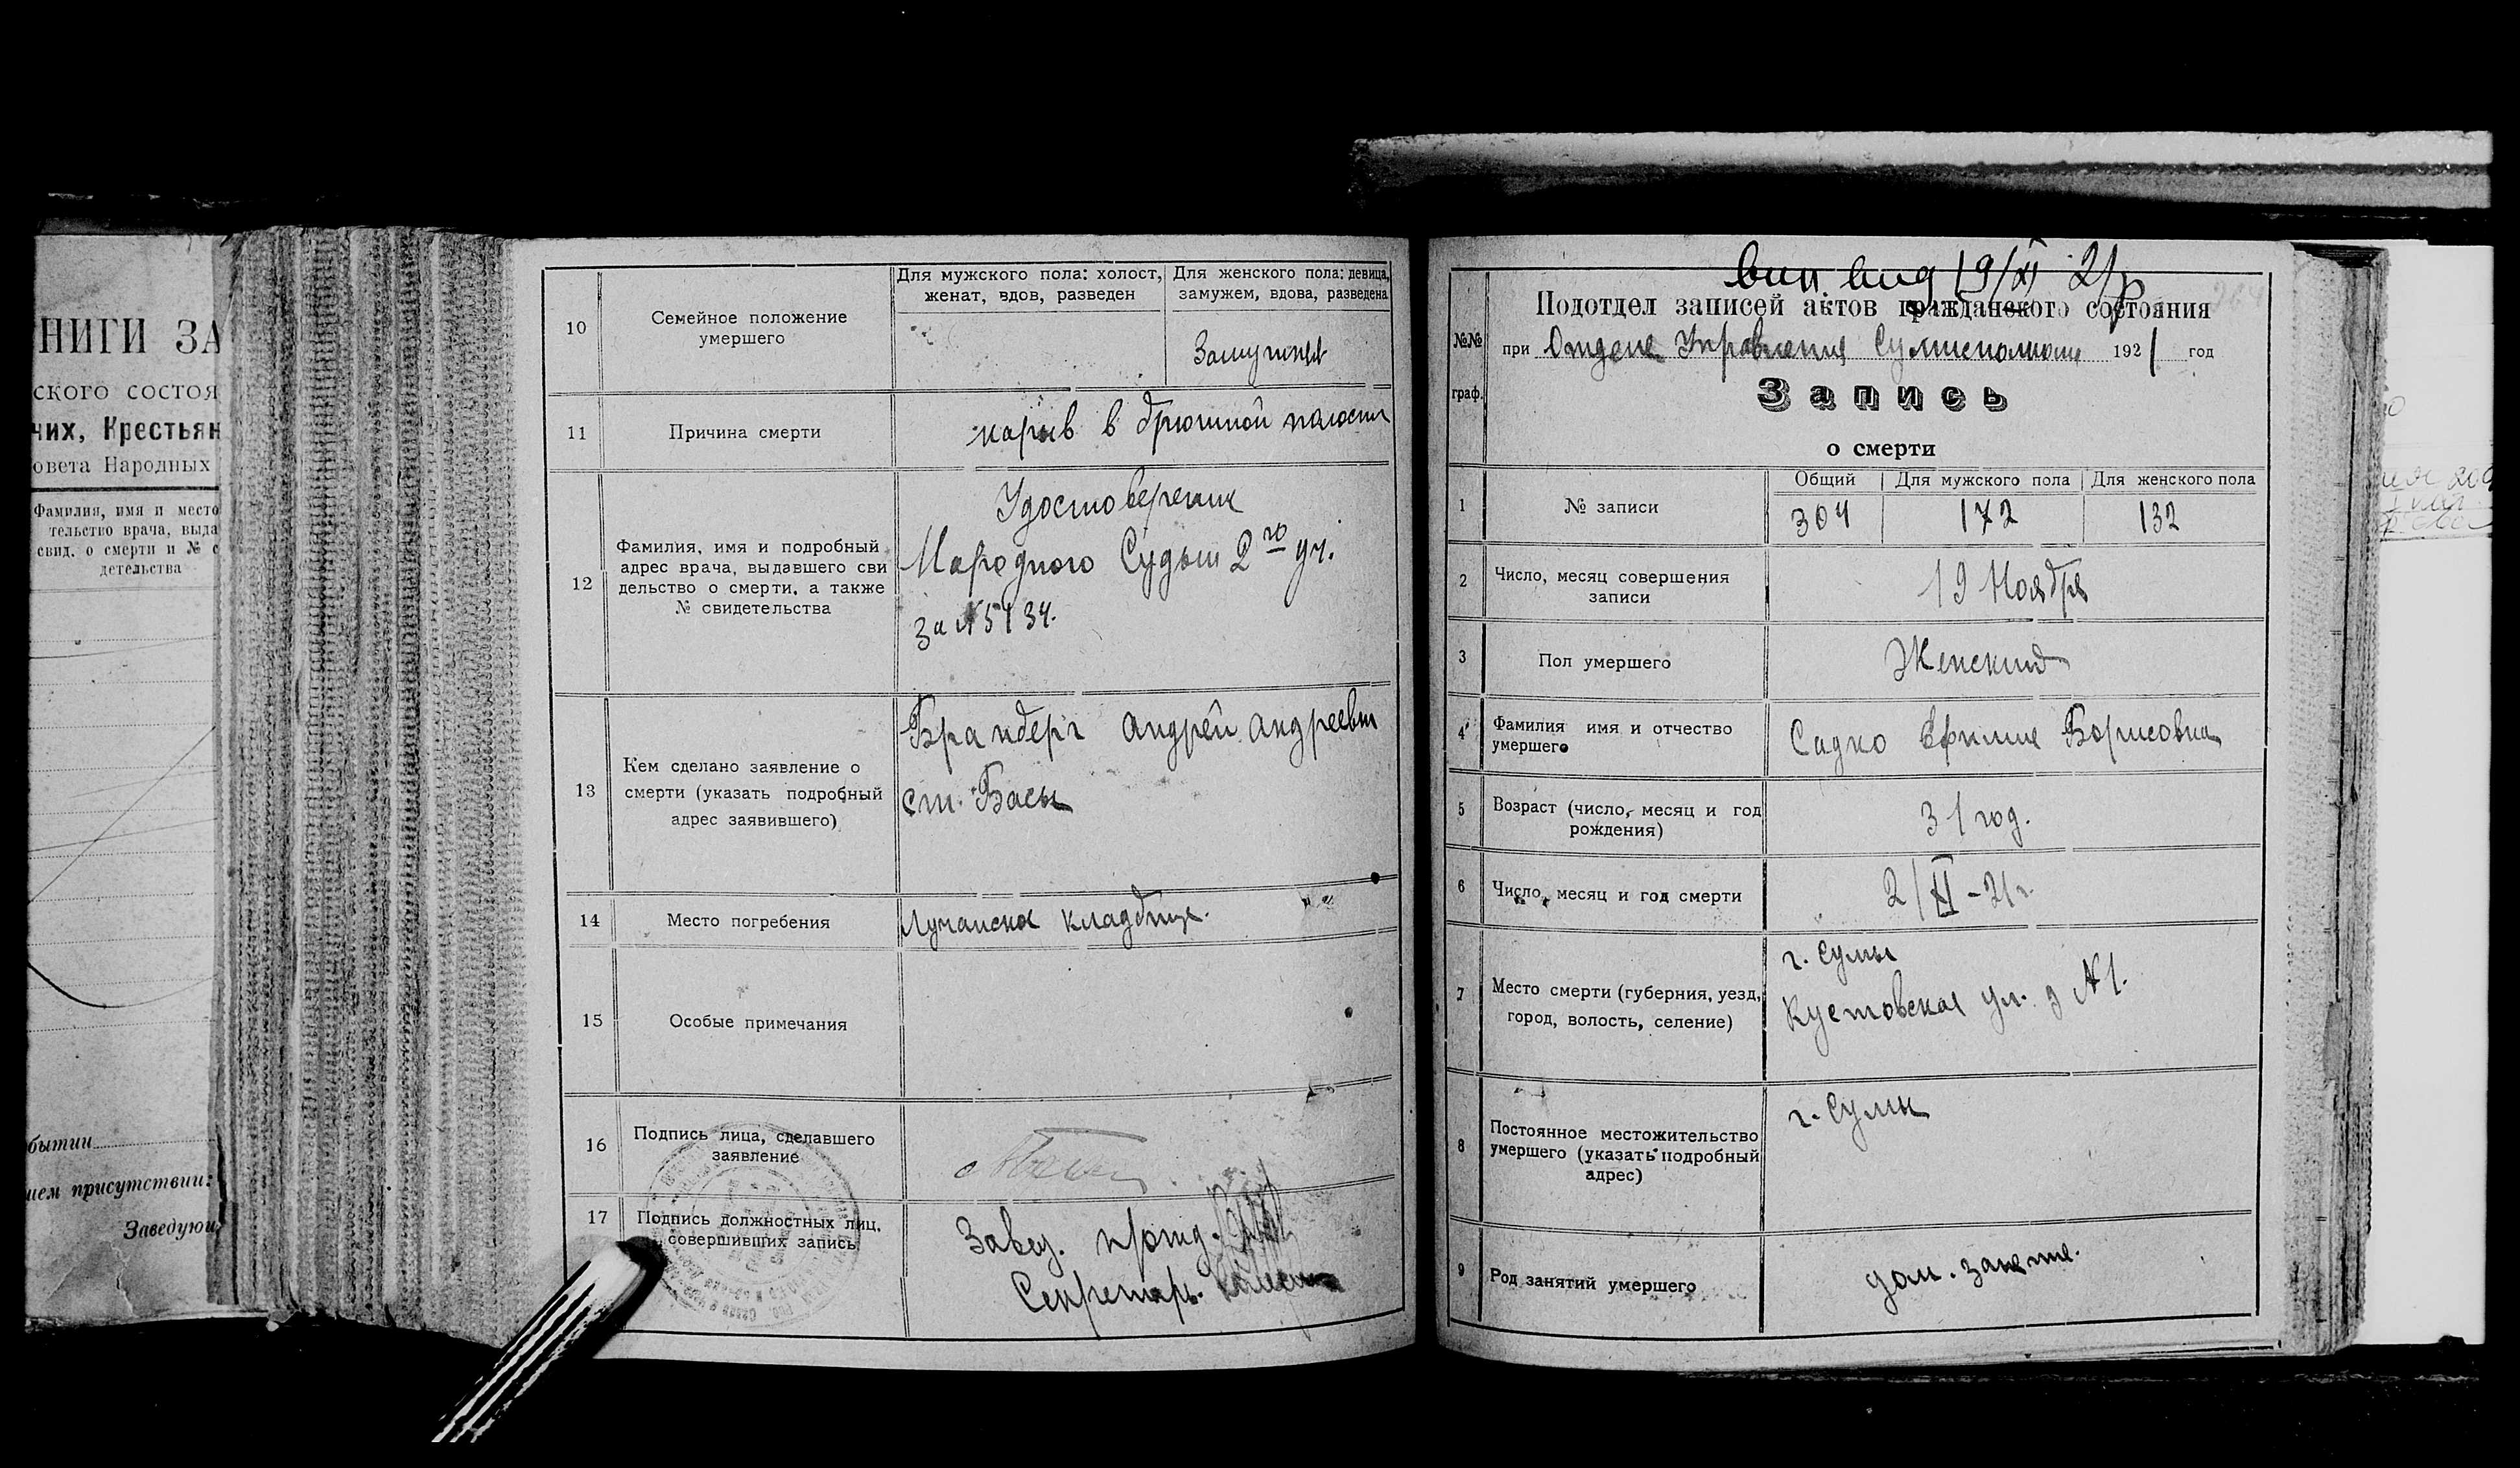 НИГИ ЗА
ского состоя
чих, Крестьян
овета Народных
Фамилия, имя и место
тельство врача, выда
свид. о смерти и № с
детельства
бытии
ием присутствии:
Заведую
10
Семейное положение
умершего
Для мужского пола: холост,
женат, вдов, разведен
Для женского пола: девица,
замужем, вдова, разведена
Замужняя
11
Причина смерти
нарыв в брюшной полости
12
Фамилия, имя и подробный
адрес врача, выдавшего сви
дельство о смерти, а также
№ свидетельства
Удостоверение
Народного Судьи 2го уч.
За №5134.
13
Кем сделано заявление о
смерти (указать подробный
адрес заявившего)
Брандберг Андрей Андреевич
ст. Басы
14
Место погребения
Лучанское кладбище.
15
Особые примечания
16
Подпись лица, сделавшего
заявление
17
Подпись должностных лиц,
совершивших запись
Завед. п/отд.
Секретарь.
вып. вид 19/XI 21 р
Подотдел записей актов гражданского состояния
№№
граф.
при Отделе Управления Сумисполкома 1921 год
Запись
о смерти
1
№ записи
Общий
Для мужского пола
Для женского пола
304
172
132
2
Число, месяц совершения
записи
19 Ноября
3
Пол умершего
Женский
4
Фамилия имя и отчество
умершего
Садко Ефимия Борисовна
5
Возраст (число, месяц и год
рождения)
31 год.
6
Число, месяц и год смерти
2/XI-21г.
7
Место смерти (губерния, уезд,
город, волость, селение)
г. Сумы
Кустовская ул. д №1.
8
Постоянное местожительство
умершего (указать подробный
адрес)
г. Сумы
9
Род занятий умершего
дом. занятие.